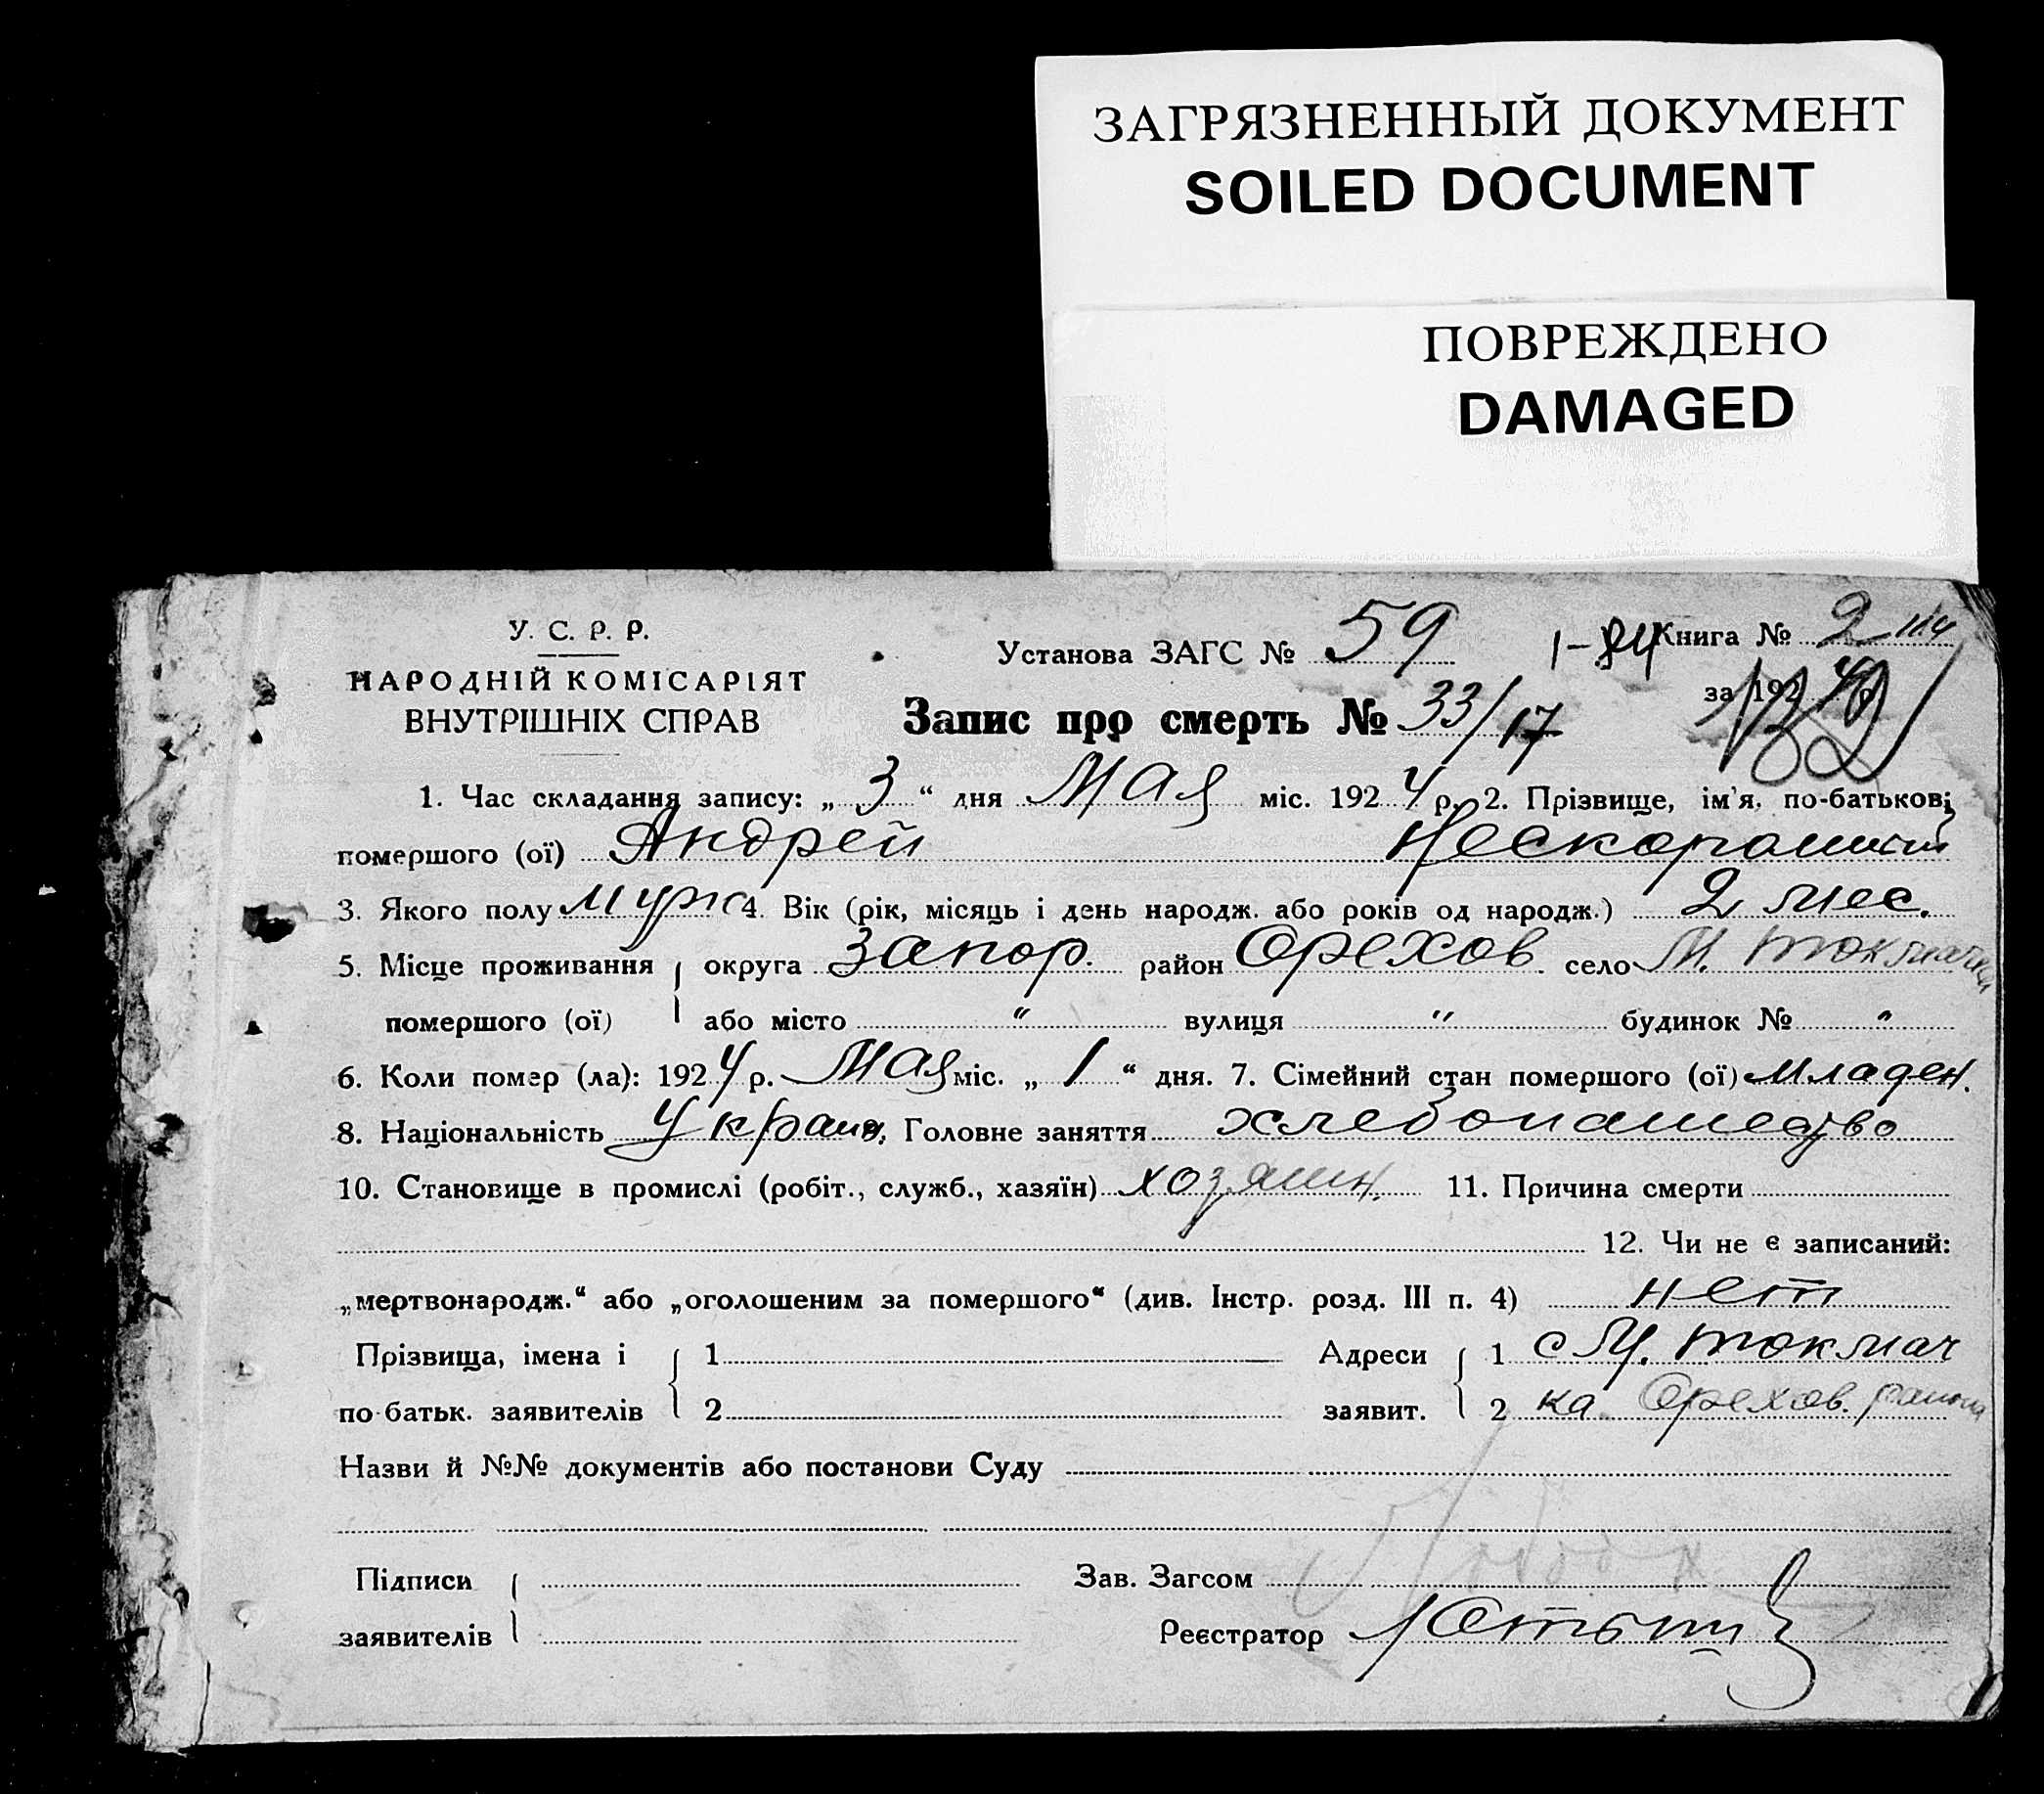 ЗАГРЯЗНЕННЫЙ ДОКУМЕНТ
SOILED DOCUMENT
ПОВРЕЖДЕНО
DAMAGED
У. С. Р. Р.
НАРОДНІЙ КОМІСАРІЯТ
ВНУТРІШНІХ СПРАВ
Установа ЗАГС № 59
Книга № 2
за 1924 р.
Запис про смерть № 33/17
1. Час складання запису: „ 3 “ дня Мая міс. 1924 р. 2. Прізвище, ім'я, по-батькові
помершого (ої) Андрей
3. Якого полу муж 4. Вік (рік, місяць і день народж. або років од народж.) 2 мес.
5. Місце проживання округа Запор. район Орехов. село М. Токмачка
помершого (ої) або місто " вулиця " будинок № "
6. Коли помер (ла): 1924 р. Мая міс. „ 1 “ дня. 7. Сімейний стан помершого (ої) младен.
8. Національність Украин, Головне заняття хлебопашество
10. Становище в промислі (робіт., служб., хазяїн) хозяин. 11. Причина смерти
12. Чи не є записаний:
„мертвонародж.“ або „оголошеним за помершого“ (див. Інстр. розд. III п. 4) нет
Прізвища, імена і 1 Адреси 1 с М. Токмач
по-батьк. заявителів 2 заявит. 2 ка Орехов. района
Назви й №№ документів або постанови Суду
Підписи Зав. Загсом
заявителів Реєстратор